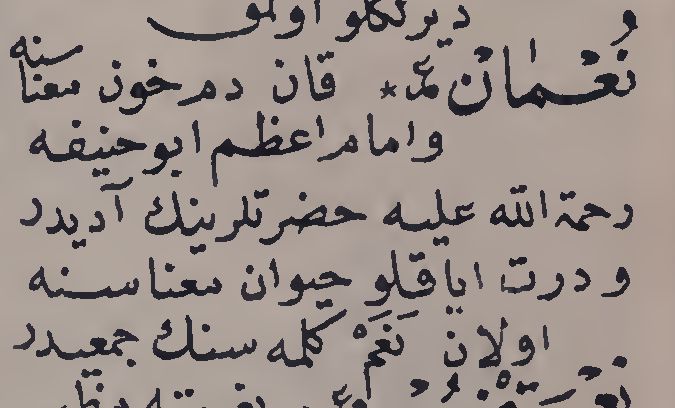 ديرنكلو اولمق
نُعْمَانْ عم * قان دم خون معناسنه
و امام اعظم ابو حنيفه
رحمة الله عليه حضرتلرينك آديدر
و درت اياقلو حيوان معناسنه
اولان نَعَمْ كلمه سنك جمعيدر